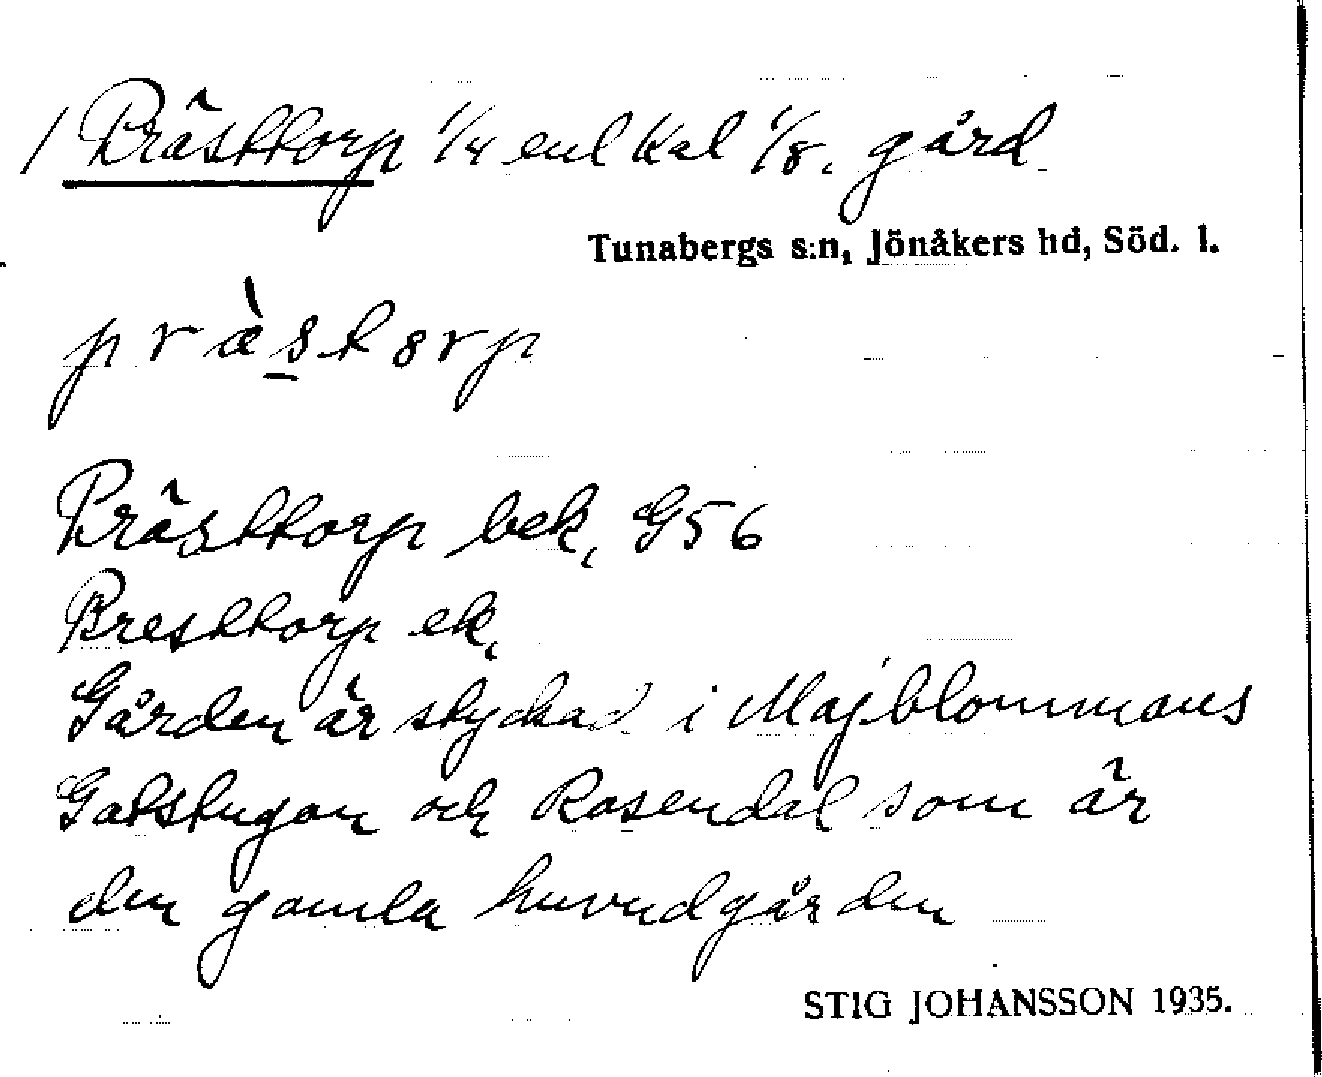 / Prästtorp 1/4 enl Kal 1/8. gård
Tunabergs s:n, Jönåkers hd, Söd. l.
præ̀storp
Prästtorp bek, G56
Presttorp ek,
Gården är styckad i Majblommans
Gatstugan och Rosendal som är
den gamla huvudgården
STIG JOHANSSON 1935.